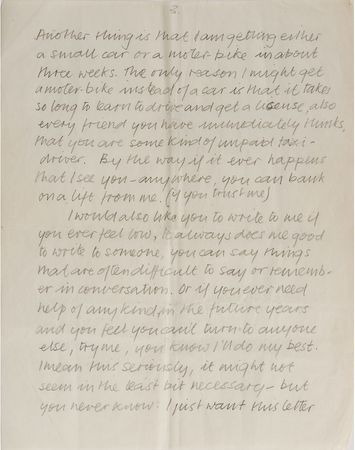 3.
Another thing is that I am getting either
a small car or a moter-bike in about
three weeks. The only reason I might get
a moter-bike instead of a car is that it takes
so long to learn to drive and get a license, also
every friend you have immediately thinks,
that you are some kind of unpaid taxi-
driver. By the way if it ever happens
that I see you - anywhere, you can bank
on a lift from me. (if you trust me)
I would also like you to write to me if
you ever feel low, it always does me good
to write to someone, you can say things
that are often difficult to say or rememb-
er in conversation. Or if you ever need
help of any kind, in the future years
and you feel you can't turn to anyone
else, try me, you know I'll do my best.
I mean this seriously, it might not
seem in the least bit necessary - but
you never know. I just want this letter